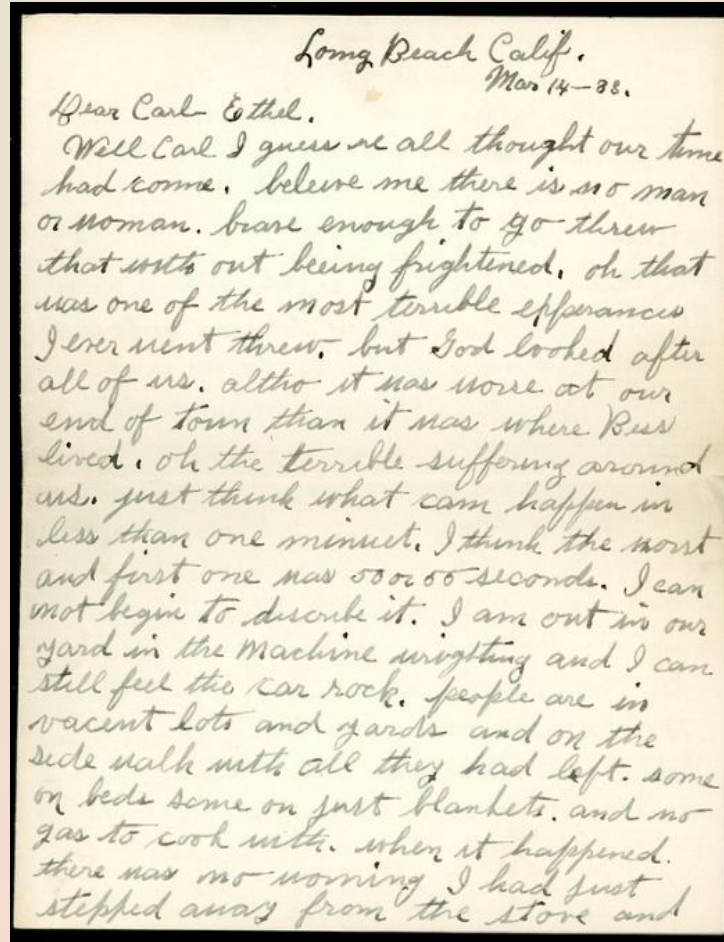 Long Beach Calif.
Mar 14-33.
Dear Carl Ethel.
Well Carl I guess we all thought our time
had come. beleive me there is no man
or woman. brave enough to go threw
that with out beeing frightened. oh that
was one of the most terrible epperances
I ever went threw. but God looked after
all of us. altho it was worse at our
end of town than it was where Bess
lived. oh the terrible suffering around
us. just think what can happen in
less than one minuet. I think the worst
and first one was 50 or 55 seconds. I can
not begin to discribe it. I am out in our
yard in the Machine wrighting and I can
still feel the car rock. people are in
vacent lots and yards and on the
side walk with all they had left. some
on beds some on just blankets. and no
gas to cook with. when it happened.
there was no worning I had just
stepped away from the stove and